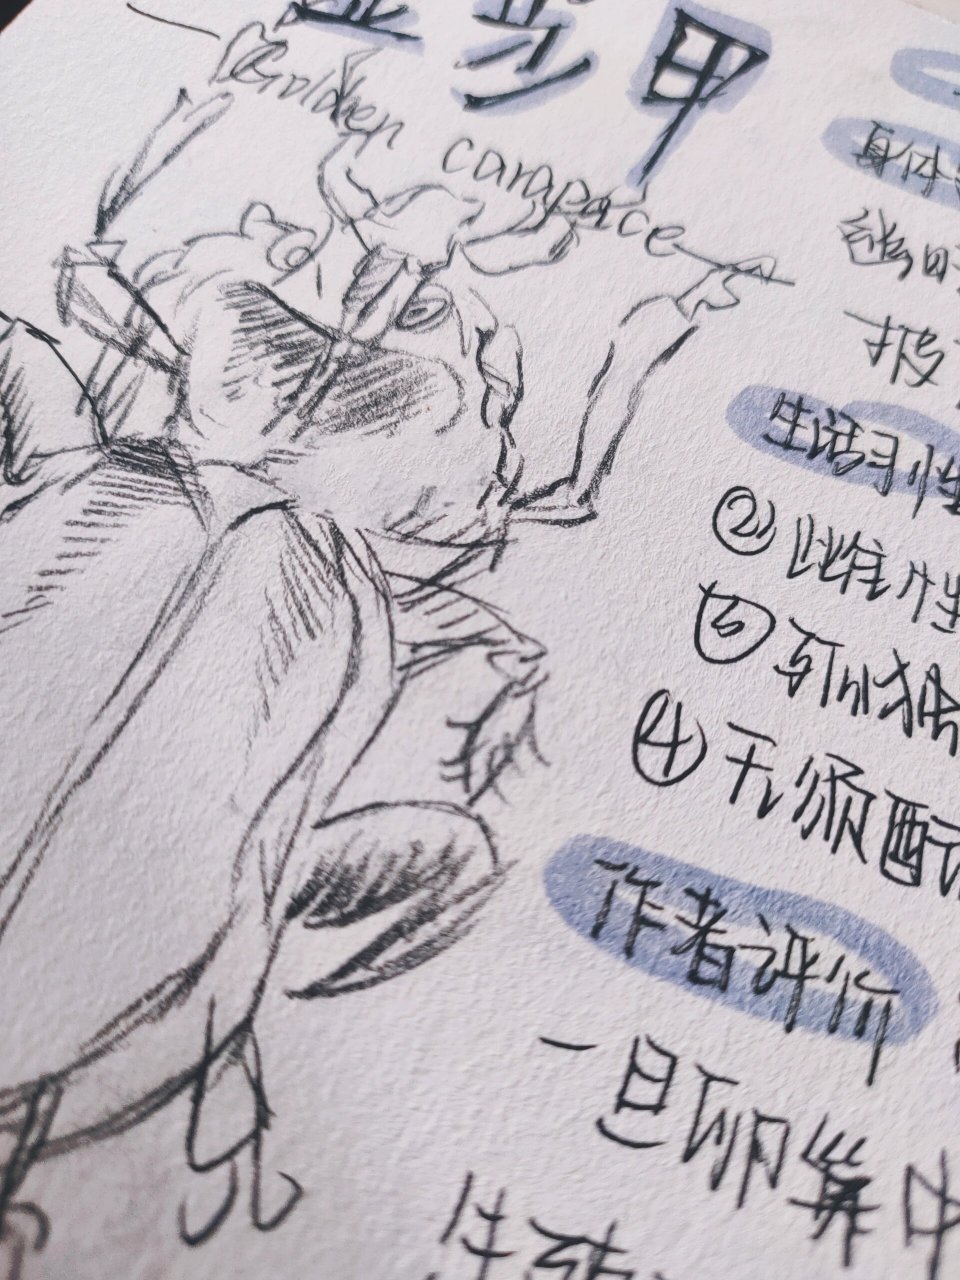 金步甲
Golden carapace
身体
披
生活习性
② 雌性
③
④ 无须配
作者评价
一旦卵巢中
生殖